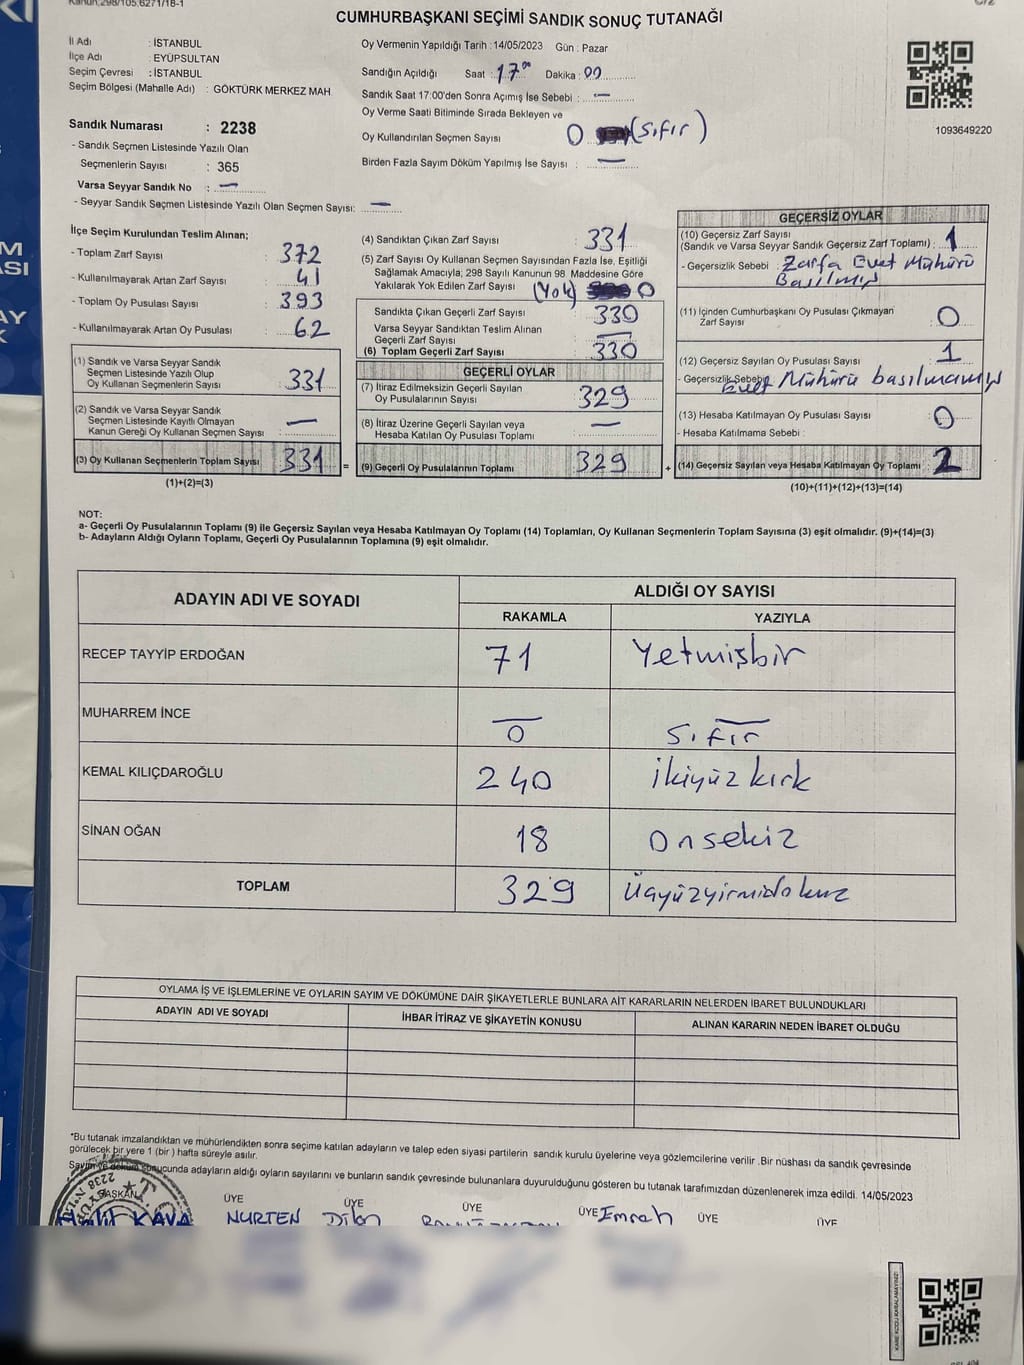 Kanun;298/105,6271/18-1
CUMHURBAŞKANI SEÇİMİ SANDIK SONUÇ TUTANAĞI
İl Adı : İSTANBUL
İlçe Adı : EYÜPSULTAN
Seçim Çevresi : İSTANBUL
Seçim Bölgesi (Mahalle Adı) : GÖKTÜRK MERKEZ MAH.
Sandık Numarası : 2238
- Sandık Seçmen Listesinde Yazılı Olan
Seçmenlerin Sayısı : 365
Varsa Seyyar Sandık No : —
- Seyyar Sandık Seçmen Listesinde Yazılı Olan Seçmen Sayısı: —
Oy Vermenin Yapıldığı Tarih : 14/05/2023 Gün : Pazar
Sandığın Açıldığı Saat : 17⁰⁰ Dakika : 00
Sandık Saat 17:00'den Sonra Açımış İse Sebebi : —
Oy Verme Saati Bitiminde Sırada Bekleyen ve
Oy Kullandırılan Seçmen Sayısı 0 (sıfır)
Birden Fazla Sayım Döküm Yapılmış İse Sayısı : —
1093649220
İlçe Seçim Kurulundan Teslim Alınan;
- Toplam Zarf Sayısı : 372
- Kullanılmayarak Artan Zarf Sayısı : 41
- Toplam Oy Pusulası Sayısı : 393
- Kullanılmayarak Artan Oy Pusulası : 62
(1) Sandık ve Varsa Seyyar Sandık
Seçmen Listesinde Yazılı Olup
Oy Kullanan Seçmenlerin Sayısı : 331
(2) Sandık ve Varsa Seyyar Sandık
Seçmen Listesinde Kayıtlı Olmayan
Kanun Gereği Oy Kullanan Seçmen Sayısı : —
(3) Oy Kullanan Seçmenlerin Toplam Sayısı 331 =
(1)+(2)=(3)
(4) Sandıktan Çıkan Zarf Sayısı : 331
(5) Zarf Sayısı Oy Kullanan Seçmen Sayısından Fazla İse, Eşitliği
Sağlamak Amacıyla; 298 Sayılı Kanunun 98 Maddesine Göre
Yakılarak Yok Edilen Zarf Sayısı (Yok) 0
Sandıkta Çıkan Geçerli Zarf Sayısı 330
Varsa Seyyar Sandıktan Teslim Alınan
Geçerli Zarf Sayısı : —
(6) Toplam Geçerli Zarf Sayısı 330
GEÇERLİ OYLAR
(7) İtiraz Edilmeksizin Geçerli Sayılan
Oy Pusulalarının Sayısı : 329
(8) İtiraz Üzerine Geçerli Sayılan veya
Hesaba Katılan Oy Pusulası Toplamı —
(9) Geçerli Oy Pusulalarının Toplamı 329 +
GEÇERSİZ OYLAR
(10) Geçersiz Zarf Sayısı
(Sandık ve Varsa Seyyar Sandık Geçersiz Zarf Toplamı) : 1
- Geçersizlik Sebebi : Zarfa Evet Mühürü
Basılmış
(11) İçinden Cumhurbaşkanı Oy Pusulası Çıkmayan
Zarf Sayısı : 0
(12) Geçersiz Sayılan Oy Pusulası Sayısı : 1
- Geçersizlik Sebebi: Evet Mühürü basılmamış
(13) Hesaba Katılmayan Oy Pusulası Sayısı : 0
- Hesaba Katılmama Sebebi :
(14) Geçersiz Sayılan veya Hesaba Katılmayan Oy Toplamı 2
(10)+(11)+(12)+(13)=(14)
NOT:
a- Geçerli Oy Pusulalarının Toplamı (9) ile Geçersiz Sayılan veya Hesaba Katılmayan Oy Toplamı (14) Toplamları, Oy Kullanan Seçmenlerin Toplam Sayısına (3) eşit olmalıdır. (9)+(14)=(3)
b- Adayların Aldığı Oyların Toplamı, Geçerli Oy Pusulalarının Toplamına (9) eşit olmalıdır.
ADAYIN ADI VE SOYADI ALDIĞI OY SAYISI
RAKAMLA YAZIYLA
RECEP TAYYİP ERDOĞAN 71 Yetmişbir
MUHARREM İNCE 0 sıfır
KEMAL KILIÇDAROĞLU 240 İkiyüz kırk
SİNAN OĞAN 18 Onsekiz
TOPLAM 329 Üçyüzyirmidokuz
OYLAMA İŞ VE İŞLEMLERİNE VE OYLARIN SAYIM VE DÖKÜMÜNE DAİR ŞİKAYETLERLE BUNLARA AİT KARARLARIN NELERDEN İBARET BULUNDUKLARI
ADAYIN ADI VE SOYADI İHBAR İTİRAZ VE ŞİKAYETİN KONUSU ALINAN KARARIN NEDEN İBARET OLDUĞU
*Bu tutanak imzalandıktan ve mühürlendikten sonra seçime katılan adayların ve talep eden siyasi partilerin sandık kurulu üyelerine veya gözlemcilerine verilir .Bir nüshası da sandık çevresinde
görülecek bir yere 1 (bir ) hafta süreyle asılır.
Sayım ve döküm sonucunda adayların aldığı oyların sayılarını ve bunların sandık çevresinde bulunanlara duyurulduğunu gösteren bu tutanak tarafımızdan düzenlenerek imza edildi. 14/05/2023
BAŞKAN ÜYE ÜYE ÜYE ÜYE ÜYE ÜYE
KAVA NURTEN Dilan Emrah
2238